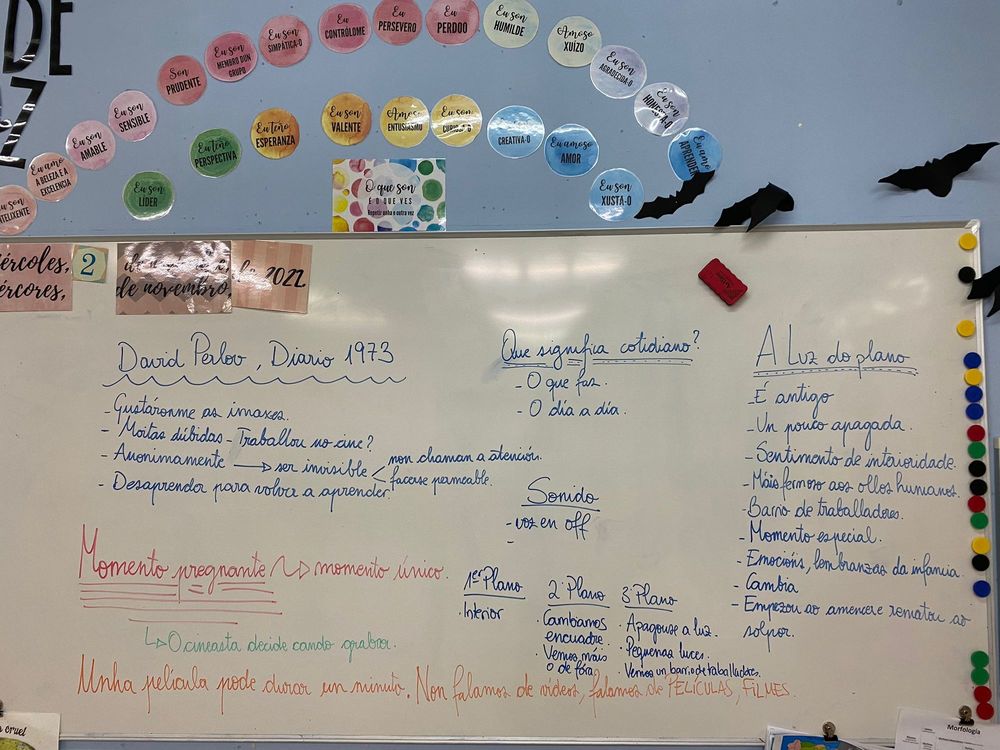 DE
Z
Eu son INTELIXENTE
Eu amo A BELEZA E A EXCELENCIA
Eu son AMABLE
Eu son SENSIBLE
Son PRUDENTE
Eu son MEMBRO DUN GRUPO
Eu son SIMPÁTICA-O
Eu CONTRÓLOME
Eu PERSEVERO
Eu PERDOO
Eu son HUMILDE
Amoso XUÍZO
Eu son AGRADECIDA-O
Eu son
Eu amo APRENDER
Eu son LÍDER
Eu teño PERSPECTIVA
Eu teño ESPERANZA
Eu son VALENTE
Amoso ENTUSIASMO
Eu son
CREATIVA-O
Eu amoso AMOR
Eu son XUSTA-O
O que son
É O QUE VES
Repetir unha e outra vez
ércoles,
ércores,
2
de novembro,
2022
David Perlov, Diario 1973
- Gustáronme as imaxes.
- Moitas dúbidas - Traballou no cine?
- Anonimamente → ser invisible < non chaman a atención.
facerse permeable.
- Desaprender para volver a aprender.
Momento pregnante → momento único.
↳ O cineasta decide cando grabar.
Unha película pode durar un minuto. Non falamos de vídeos, falamos de PELÍCULAS, FILMES.
Que significa cotidiano?
- O que fas.
- O día a día.
Sonido
- voz en off
-
1er Plano
· Interior
2º Plano
· Cambiamos
encuadre.
· Vemos máis
o de fóra.
3º Plano
· Apagouse a luz.
· Pequenas luces.
· Vemos un barrio de traballadores.
A Luz do plano
- É antigo
- Un pouco apagada.
- Sentimento de interioridade.
- Máis fermoso aos ollos humanos.
- Barrio de traballadores.
- Momento especial.
- Emocións, lembranzas da infancia.
- Cambia
- Empezou ao amencer e rematou ao
solpor.
cruel
Morfología